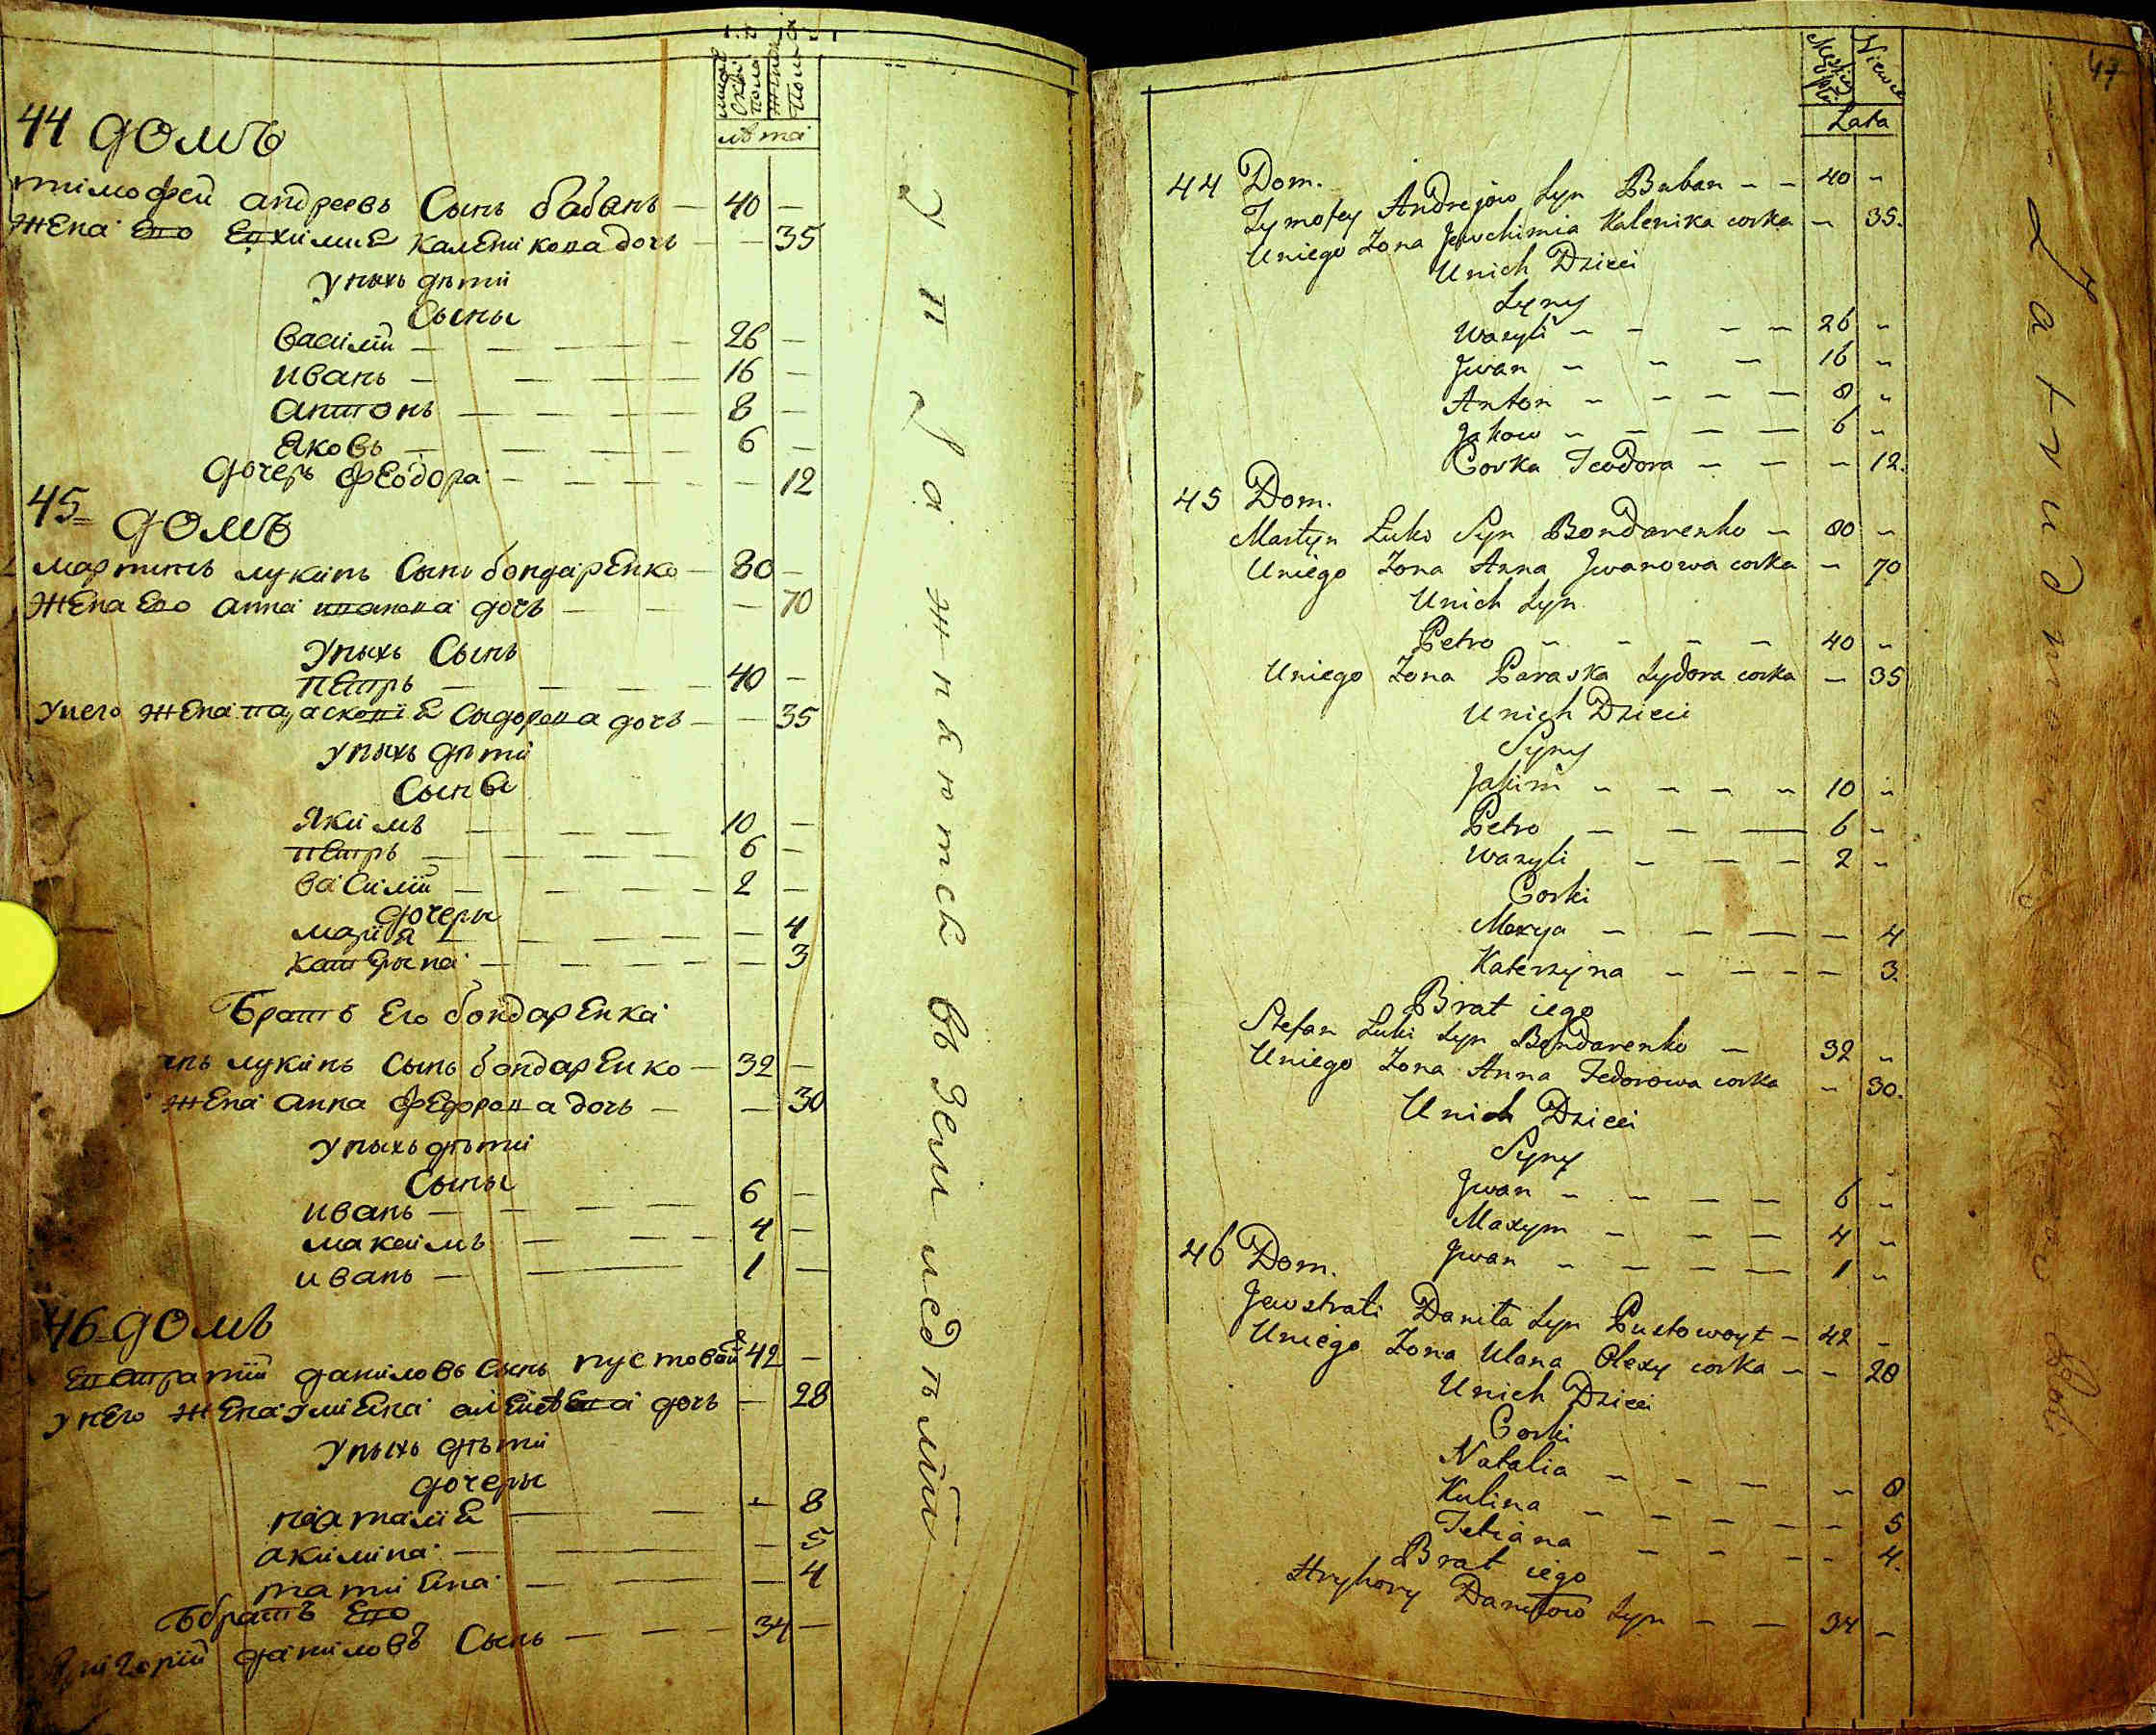 мужескаго пола
женскаго пола
лѣта
44 домъ
тимофей андреевъ Сынъ бабанъ — 40 —
жена его евхимиѣ каленикова дочь — — 35
у ныхъ дѣти
Сыны
василий — 26 —
иванъ — 16 —
антонъ — 8 —
яковъ — 6 —
дочеръ феодора — — 12
45 домъ
мартинъ лукинъ Сынъ бондаренко — 80 —
жена его анна иванова дочь — — 70
у ныхъ Сынъ
петръ — 40 —
у него жена парасковиѣ сыдорова дочь — — 35
у ныхъ дѣти
Сыны
якимъ — 10 —
петръ — 6 —
василий — 2 —
дочеры
мариѣ — — 4
катерына — — 3
братъ его бондаренка
лукинъ Сынъ бондаренко — 32 —
жена анна федорова дочь — — 30
у ныхъ дѣти
Сыны
иванъ — 6 —
максимъ — 4 —
иванъ — 1 —
46 домъ
евстратий даниловъ сынъ пустовой 42 —
у него жена улиѣна дочь — 28
у ныхъ дѣти
дочеры
наталиѣ — — 8
акилина — — 5
татиѣна — — 4
братъ его
григорий даниловъ Сынъ — 34 —
упражнѣются въ земледѣлии
47
Męskiey płci
Niewie
Lata
44 Dom.
Tymofey Andrejow Syn Baban — — 40 —
Uniego Zona Jewchimia Kalenika corka — 35.
Unich Dzieci
Syny
Wasyli — — — — 26 —
Jwan — — — 16 —
Anton — — — — 8 —
Jakow — — — — 6 —
Corka Teodora — — — 12.
45 Dom.
Martyn Luki Syn Bondarenko — 80 —
Uniego Zona Anna Jwanowa corka — 70
Unich Syn
Petro — — — — 40 —
Uniego Zona Paraska Sydora corka — 35
Unich Dzieci
Syny
Jakim — — — — 10 —
Petro — — — 6 —
Wasyli — — — 2 —
Corki
Marya — — — — 4
Katerzyna — — — — 3.
Brat iego
Stefan Luki Syn Bondarenko — 32 —
Uniego Zona Anna Fedorowa corka — 30.
Unich Dzieci
Syny
Jwan — — — — 6 —
Maxym — — — 4 —
Jwan — — — — 1 —
46 Dom.
Jewstrati Daniła Syn Pustowoyt — 42 —
Uniego Zona Ulana Olexy corka — — 28
Unich Dzieci
Corki
Natalia — — — — 8
Kulina — — — — — 5
Tetiana — — — — 4.
Brat iego
Hryhory Daniłow Syn — — 34 —
Zatrudnieni